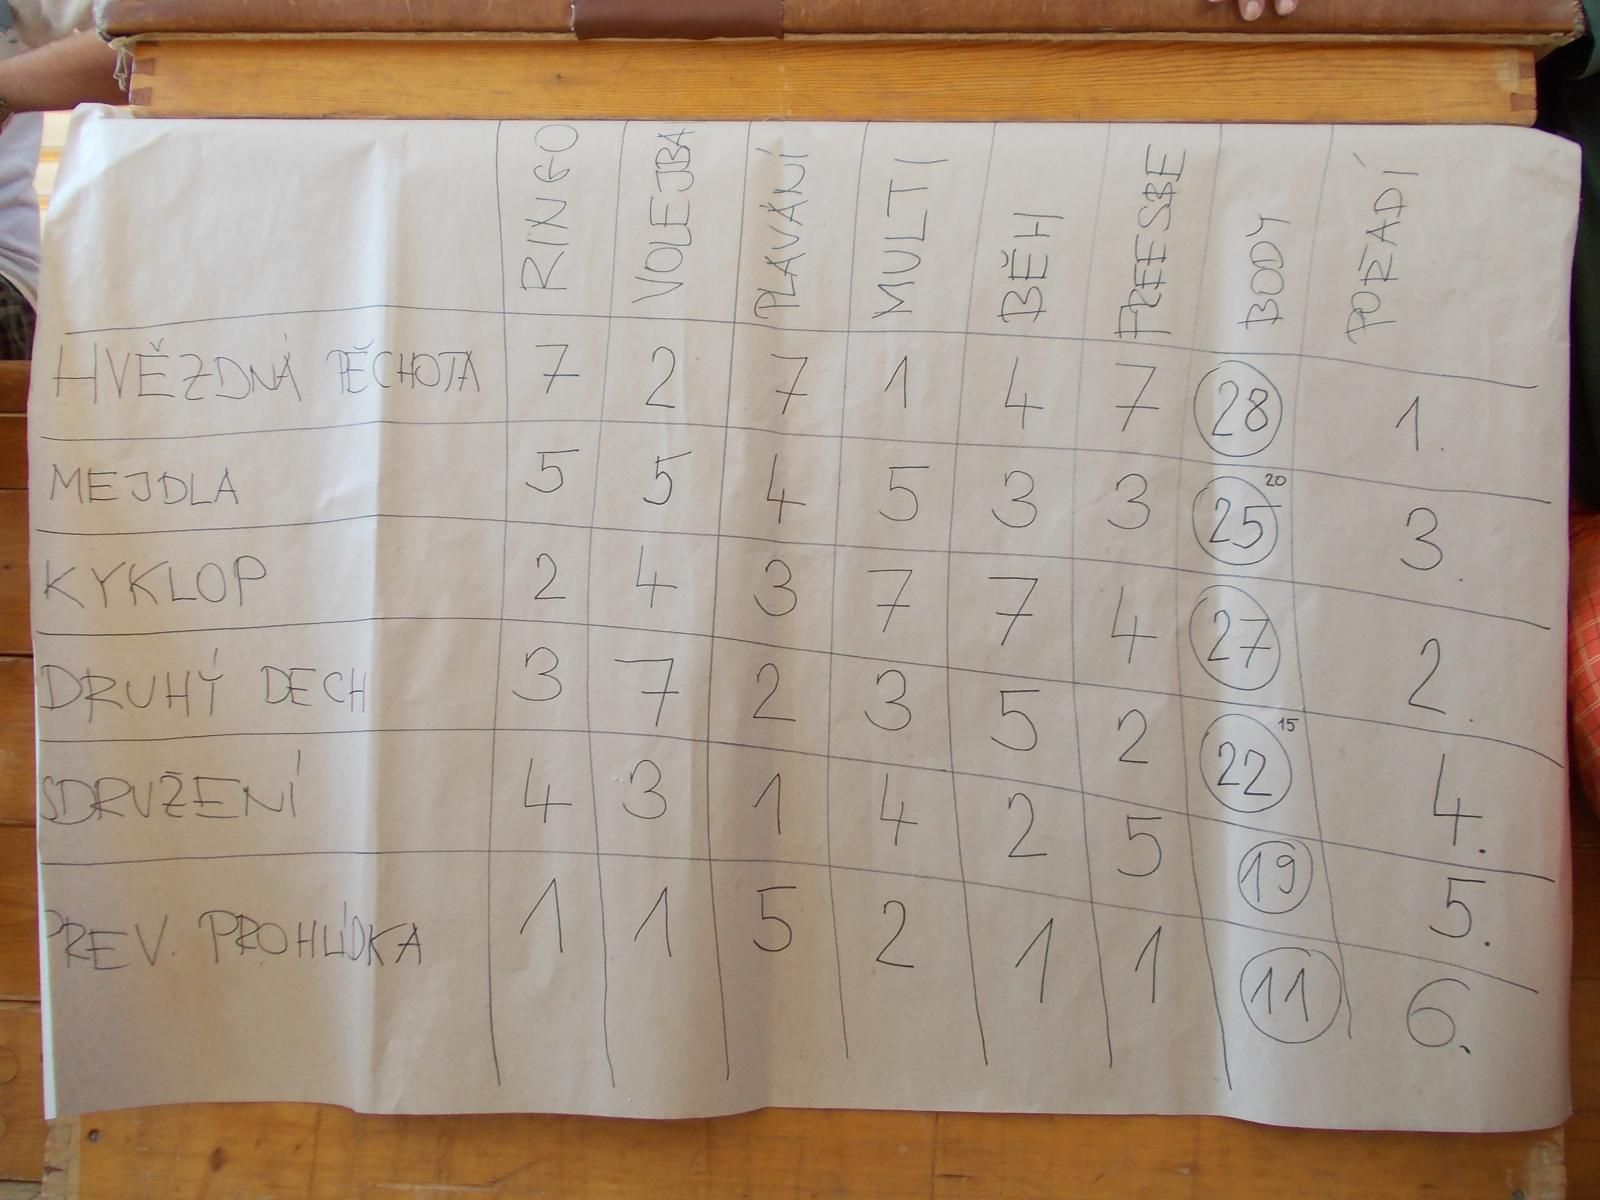 RINGO VOLEJBA PLAVÁNÍ MULTI BĚH FREESBE BODY POŘADÍ
HVĚZDNÁ PĚCHOTA 7 2 7 1 4 7 28 1.
MEJDLA 5 5 4 5 3 3 25 20 3.
KYKLOP 2 4 3 7 7 4 27 2.
DRUHÝ DECH 3 7 2 3 5 2 22 15 4.
SDRUŽENÍ 4 3 1 4 2 5 19 5.
PREV. PROHLÍDKA 1 1 5 2 1 1 11 6.